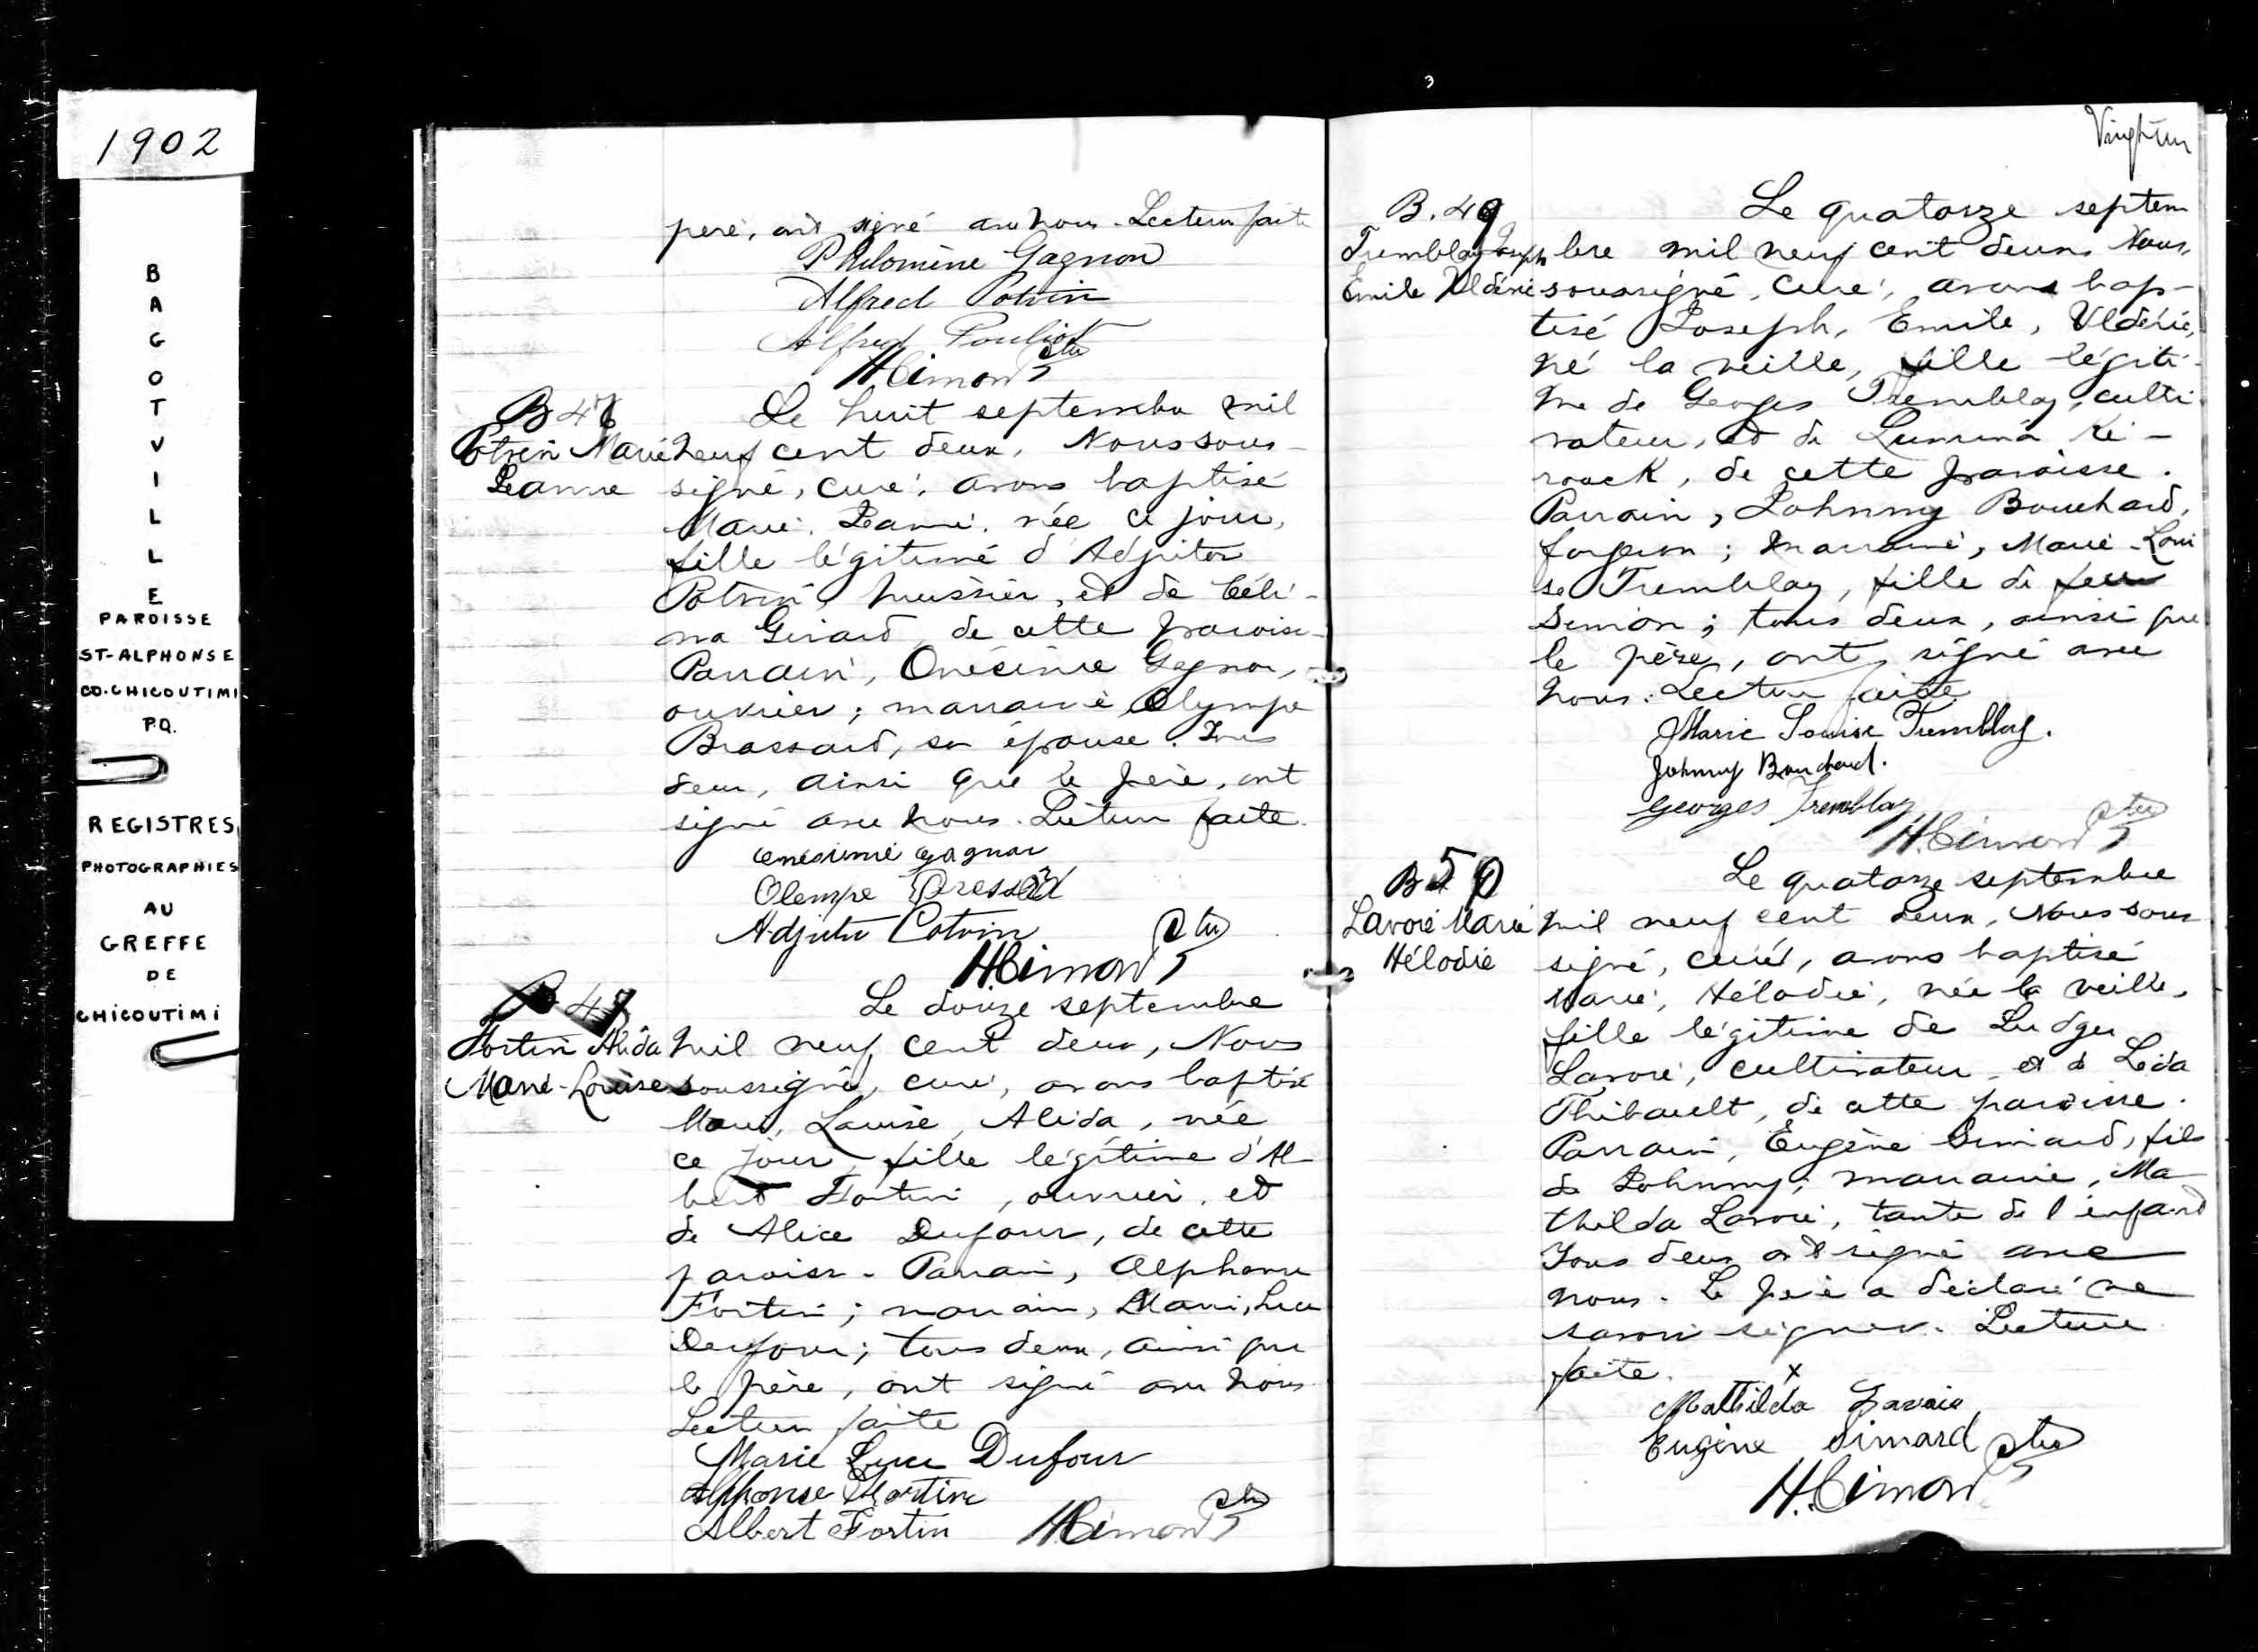 1902
BAGOTVILLE
PAROISSE
ST-ALPHONSE
CO. CHICOUTIMI.
P.Q.
REGISTRES
PHOTOGRAPHIES
AU
GREFFE
DE
CHICOUTIMI
père, ont signé avec nous. Lecture faite
Philomène Gagnon
Alfred Potvin
Alfred Pouliot
H Cimon Ptre
B 47
Potvin Marie
Jeanne
Le huit septembre mil
neuf cent deux, Nous sous-
signé, curé, avons baptisé
Marie, Jeanne, née ce jour,
fille légitime d'Adjutor
Potvin, huissier, et de Céli-
na Girard, de cette paroisse.
Parrain, Onésime Gagnon,
ouvrier; marraine Olympe
Brassard, son épouse. Tous
deux, ainsi que le père, ont
signé avec nous. Lecture faite.
Onésime Gagnon
Olempe Brassard
Adjutor Potvin
H. Cimon Ptre
B 48
Fortin Alida
Marie-Louise
Le douze septembre
mil neuf cent deux, Nous
soussigné, curé, avons baptisé
Marie, Louise, Alida, née
ce jour, fille légitime d'Al-
bert Fortin, ouvrier, et
de Alice Dufour, de cette
paroisse. Parrain, Alphonse
Fortin; marraine, Marie, Luce
Dufour; tous deux, ainsi que
le père, ont signé avec nous
Lecture faite
Marie Luce Dufour
Alphonse Fortin
Albert Fortin H Cimon Ptre
Vingt-un
B. 49
Tremblay Joseph
Emile Uldéric
Le quatorze septem
bre mil neuf cent deux Nous,
soussigné, curé, avons bap-
tisé Joseph, Emile, Uldéric,
né la veille, fille légiti-
me de Georges Tremblay, culti
vateur, et de Lumina Ke-
roack, de cette paroisse.
Parrain, Johnny Bouchard,
forgeron; marraine, Marie-Loui
se Tremblay, fille de feu
Simon; tous deux, ainsi que
le père, ont signé avec
nous. Lecture faite
Marie Louise Tremblay.
Johnny Bouchard.
Georges Tremblay
H. Cimon Ptre
B 50
Lavoie Marie
Hélodie
Le quatorze septembre
mil neuf cent deux, Nous sous
signé, curé, avons baptisé
Marie, Hélodie, née la veille,
fille légitime de Ludger
Lavoie, cultivateur et de Léda
Thibault, de cette paroisse.
Parrain, Eugène Simard, fils
de Johnny; marraine, Ma-
thilda Lavoie, tante de l'enfant
Tous deux ont signé avec
nous. Le père a déclaré ne
savoir signer. Lecture
faite. x
Mathilda Lavoie
Eugène Simard
H. Cimon Ptre